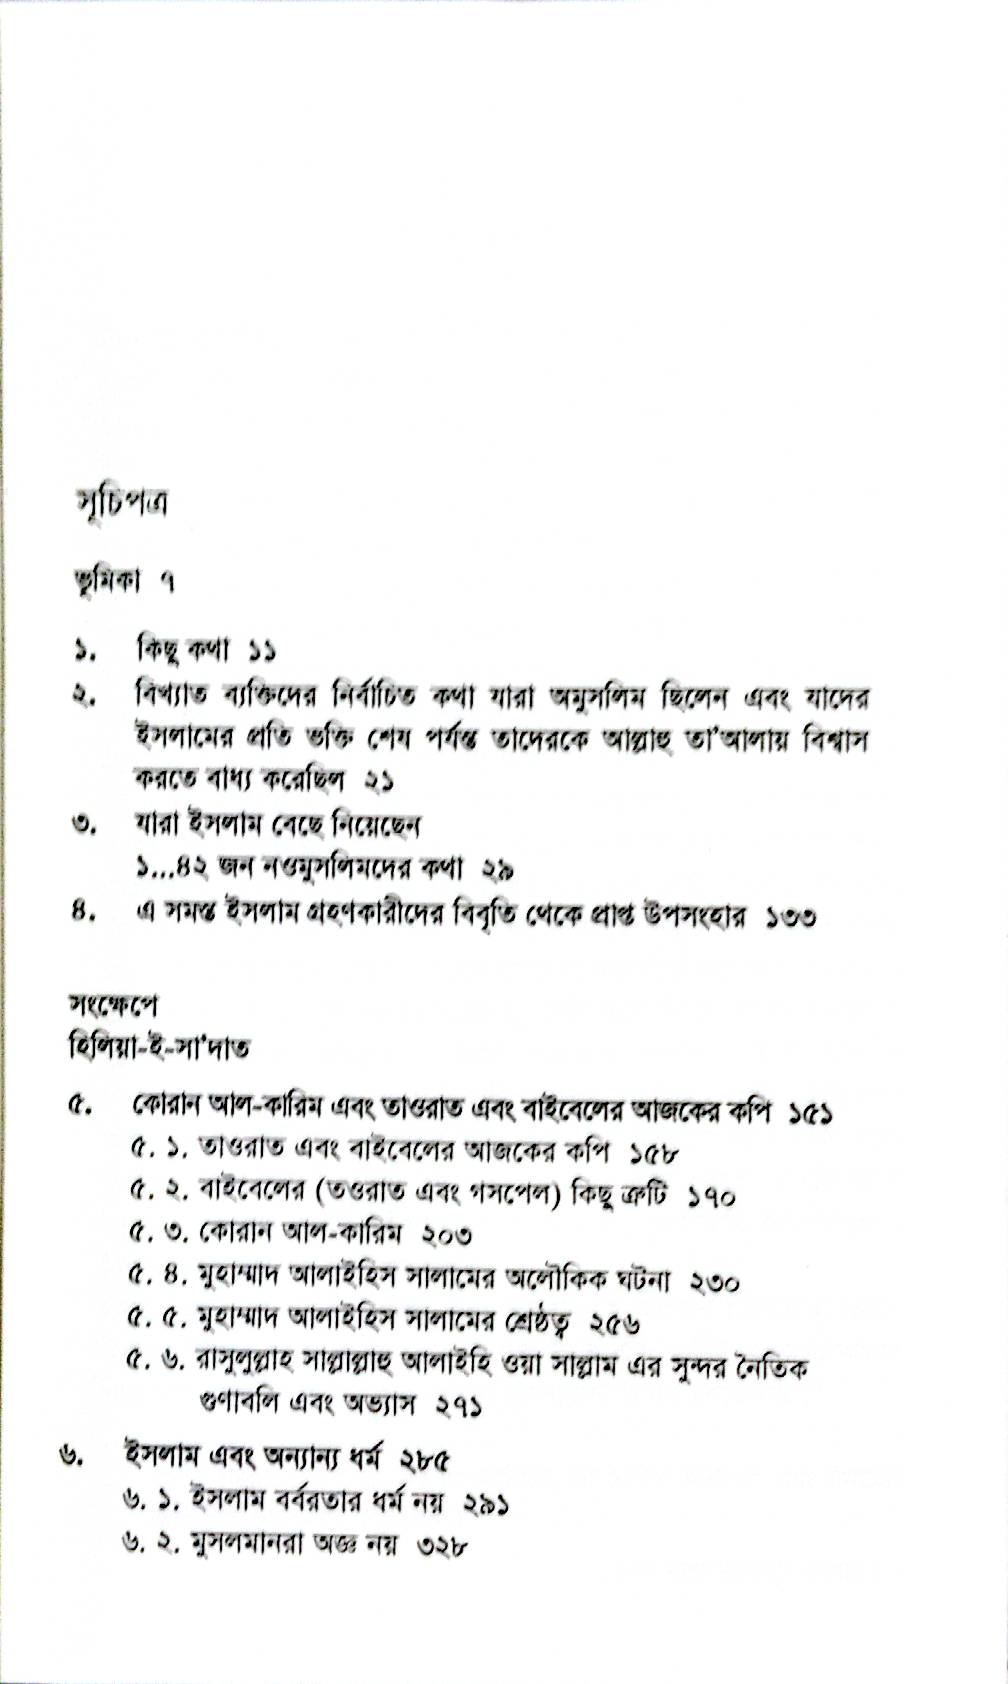 সূচিপত্র
ভূমিকা ৭
১. কিছু কথা ১১
২. বিখ্যাত ব্যক্তিদের নির্বাচিত কথা যারা অমুসলিম ছিলেন এবং যাদের
ইসলামের প্রতি ভক্তি শেষ পর্যন্ত তাদেরকে আল্লাহু তা'আলায় বিশ্বাস
করতে বাধ্য করেছিল ২১
৩. যারা ইসলাম বেছে নিয়েছেন
১...৪২ জন নওমুসলিমদের কথা ২৯
৪. এ সমস্ত ইসলাম গ্রহণকারীদের বিবৃতি থেকে প্রাপ্ত উপসংহার ১৩৩
সংক্ষেপে
হিলিয়া-ই-সা'দাত
৫. কোরান আল-কারিম এবং তাওরাত এবং বাইবেলের আজকের কপি ১৫১
৫. ১. তাওরাত এবং বাইবেলের আজকের কপি ১৫৮
৫. ২. বাইবেলের (তওরাত এবং গসপেল) কিছু ত্রুটি ১৭০
৫. ৩. কোরান আল-কারিম ২০৩
৫. ৪. মুহাম্মাদ আলাইহিস সালামের অলৌকিক ঘটনা ২৩০
৫. ৫. মুহাম্মাদ আলাইহিস সালামের শ্রেষ্ঠত্ব ২৫৬
৫. ৬. রাসুলুল্লাহ সাল্লাল্লাহু আলাইহি ওয়া সাল্লাম এর সুন্দর নৈতিক
গুণাবলি এবং অভ্যাস ২৭১
৬. ইসলাম এবং অন্যান্য ধর্ম ২৮৫
৬. ১. ইসলাম বর্বরতার ধর্ম নয় ২৯১
৬. ২. মুসলমানরা অজ্ঞ নয় ৩২৮